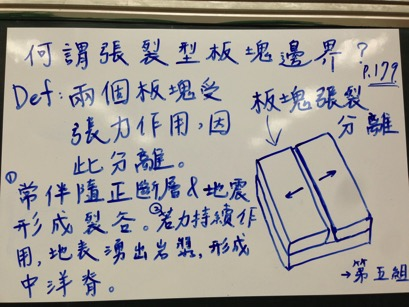 何謂張裂型板塊邊界?
P.179
Def:兩個板塊受
張力作用,因
此分離。
板塊張裂
分離
①常伴隨正斷層&地震
形成裂谷。②若力持續作
用,地表湧出岩漿,形成
中洋脊。
→第五組